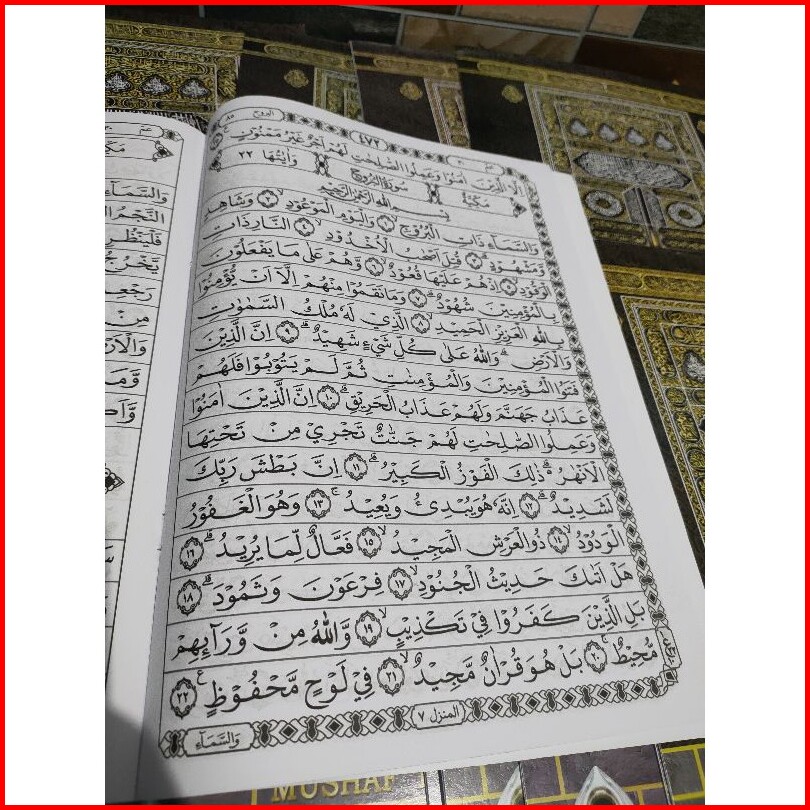 البروج ٨٥
٤٧٢
عم ٣٠
اِلَّا الَّذِيْنَ اٰمَنُوْا وَعَمِلُوا الصّٰلِحٰتِ لَهُمْ اَجْرٌ غَيْرُ مَمْنُوْنٍ
مَكِّيَّةٌ سُوْرَةُ الْبُرُوْجِ وَاٰيٰتُهَا ٢٢
بِسْمِ اللّٰهِ الرَّحْمٰنِ الرَّحِيْمِ
وَالسَّمَآءِ ذَاتِ الْبُرُوْجِ ۝١ وَالْيَوْمِ الْمَوْعُوْدِ ۝٢ وَشَاهِدٍ
وَّمَشْهُوْدٍ ۝٣ قُتِلَ اَصْحٰبُ الْاُخْدُوْدِ ۝٤ النَّارِ ذَاتِ
الْوَقُوْدِ ۝٥ اِذْ هُمْ عَلَيْهَا قُعُوْدٌ ۝٦ وَّهُمْ عَلٰى مَا يَفْعَلُوْنَ
بِالْمُؤْمِنِيْنَ شُهُوْدٌ ۝٧ وَمَا نَقَمُوْا مِنْهُمْ اِلَّآ اَنْ يُّؤْمِنُوْا
بِاللّٰهِ الْعَزِيْزِ الْحَمِيْدِ ۝٨ الَّذِيْ لَهٗ مُلْكُ السَّمٰوٰتِ
وَالْاَرْضِ ۗ وَاللّٰهُ عَلٰى كُلِّ شَيْءٍ شَهِيْدٌ ۝٩ اِنَّ الَّذِيْنَ
فَتَنُوا الْمُؤْمِنِيْنَ وَالْمُؤْمِنٰتِ ثُمَّ لَمْ يَتُوْبُوْا فَلَهُمْ
عَذَابُ جَهَنَّمَ وَلَهُمْ عَذَابُ الْحَرِيْقِ ۝١٠ اِنَّ الَّذِيْنَ اٰمَنُوْا
وَعَمِلُوا الصّٰلِحٰتِ لَهُمْ جَنّٰتٌ تَجْرِيْ مِنْ تَحْتِهَا
الْاَنْهٰرُ ۗ ذٰلِكَ الْفَوْزُ الْكَبِيْرُ ۝١١ اِنَّ بَطْشَ رَبِّكَ
لَشَدِيْدٌ ۝١٢ اِنَّهٗ هُوَ يُبْدِئُ وَيُعِيْدُ ۝١٣ وَهُوَ الْغَفُوْرُ
الْوَدُوْدُ ۝١٤ ذُو الْعَرْشِ الْمَجِيْدُ ۝١٥ فَعَّالٌ لِّمَا يُرِيْدُ ۝١٦
هَلْ اَتٰىكَ حَدِيْثُ الْجُنُوْدِ ۝١٧ فِرْعَوْنَ وَثَمُوْدَ ۝١٨
بَلِ الَّذِيْنَ كَفَرُوْا فِيْ تَكْذِيْبٍ ۝١٩ وَّاللّٰهُ مِنْ وَّرَآئِهِمْ
مُّحِيْطٌ ۝٢٠ بَلْ هُوَ قُرْاٰنٌ مَّجِيْدٌ ۝٢١ فِيْ لَوْحٍ مَّحْفُوْظٍ ۝٢٢
المنزل ٧
وَالسَّمَآءِ
MUSHAF